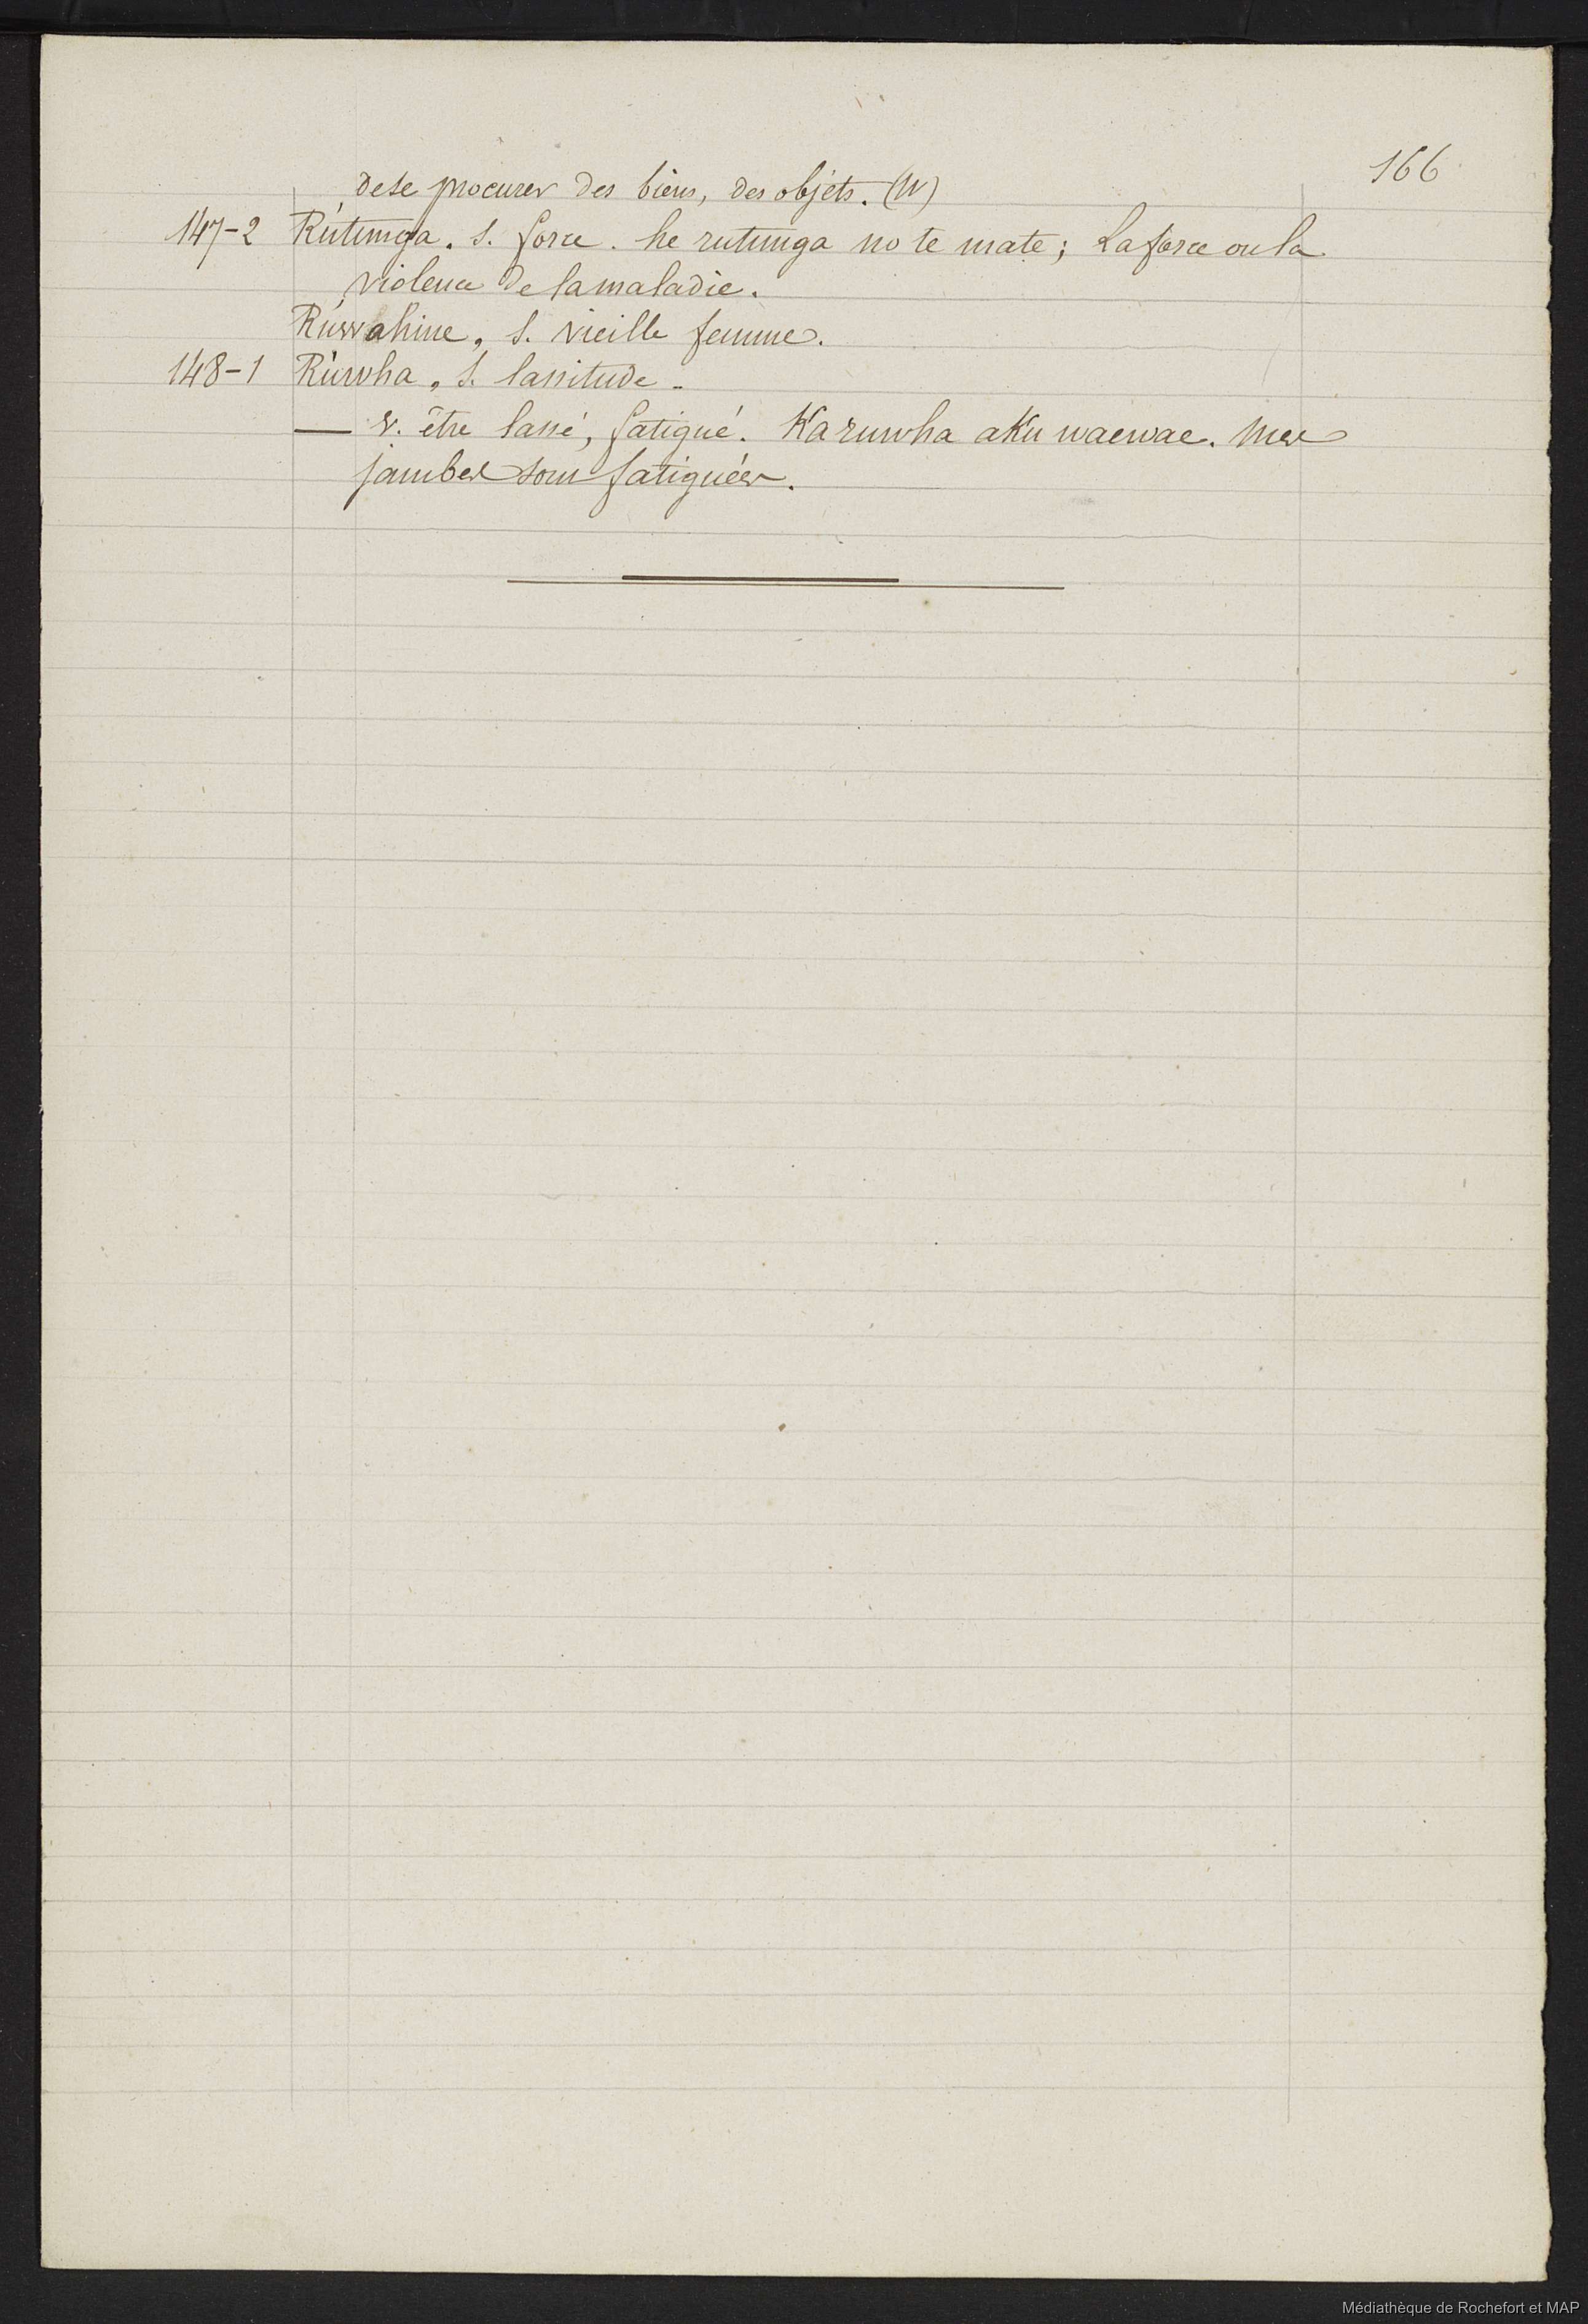 166
de se procurer des biens, des objets. (W)
147-2 Rútunga. s. force. he rutunga no te mate; La force ou la
violence de la maladie.
Rúwahine, s. vieille femme.
148-1 Rúwha, s. lassitude.
— v. être lassé, fatigué. Ka ruwha aku waewae. mes
jambes sont fatiguées.
Médiathèque de Rochefort et MAP